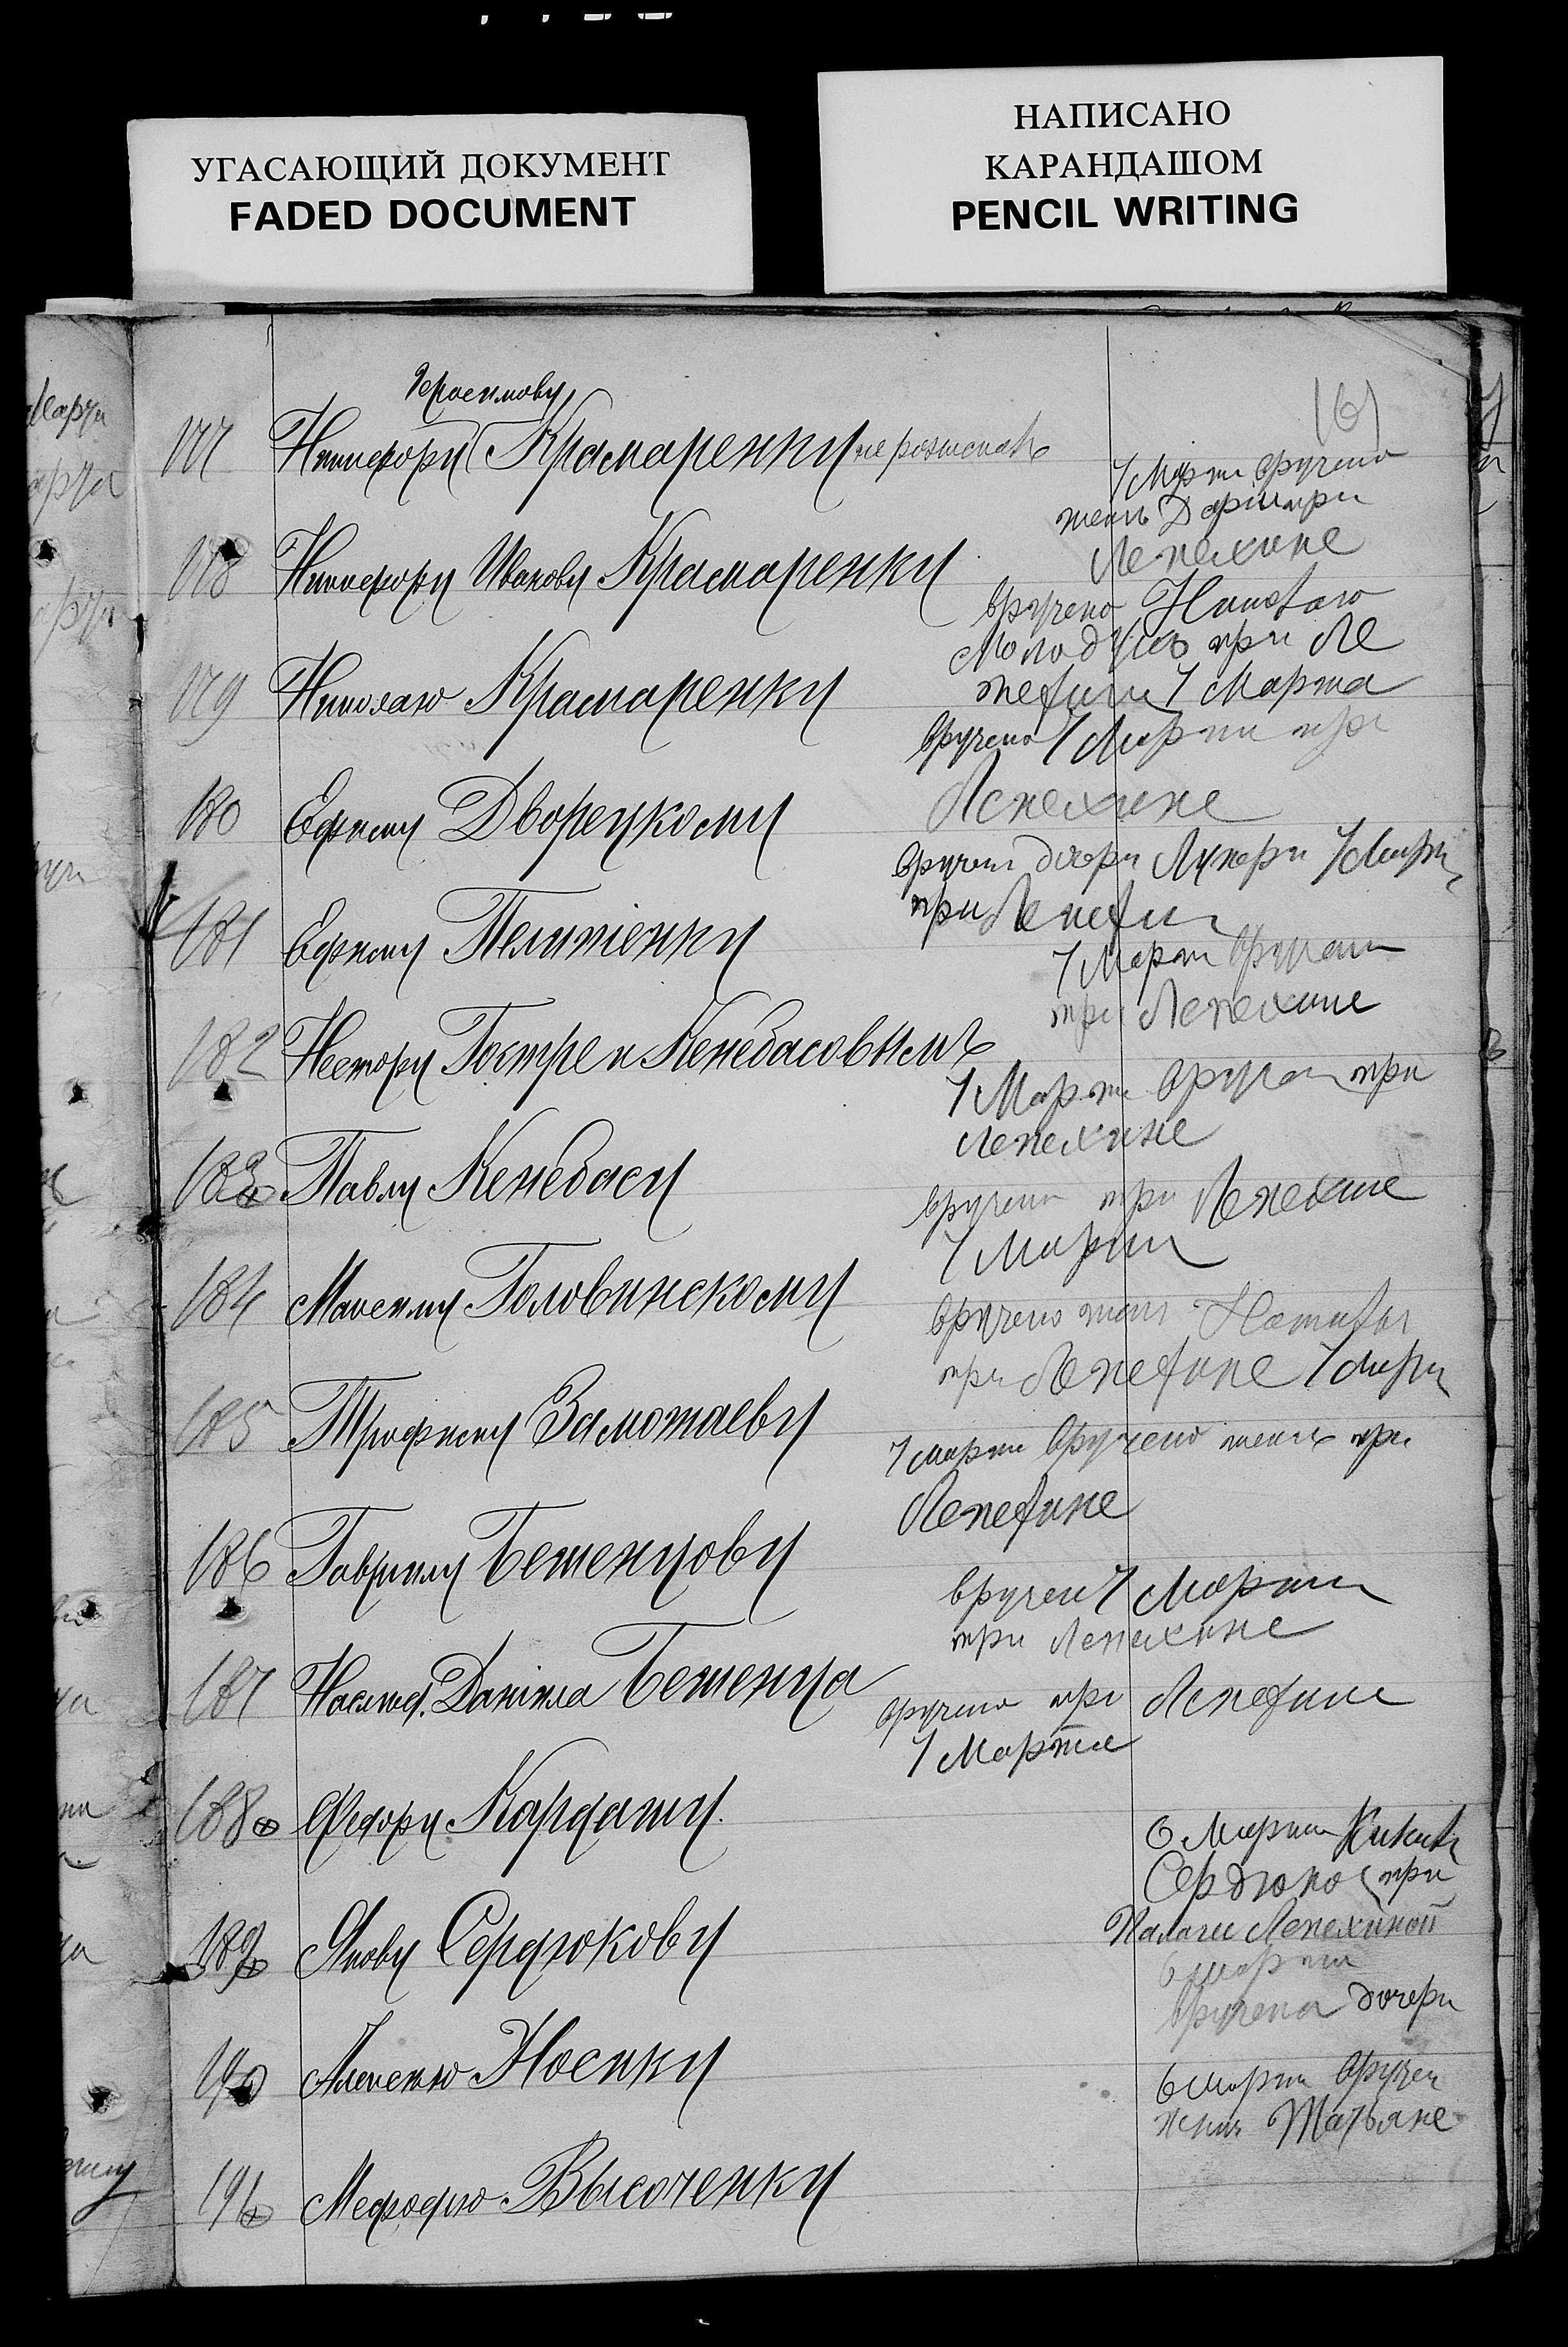 УГАСАЮЩИЙ ДОКУМЕНТ
FADED DOCUMENT
НАПИСАНО
КАРАНДАШОМ
PENCIL WRITING
161
Герасимову
177 Никифору Крамаренку не розыскан
7 Марта вручено
жене Дарьи при
Лепехине
178 Никифору Иванову Крамаренку
вручено Николаю
при Ле
пехине 7 Марта
179 Николаю Крамаренку
вручено 7 Марта при
Лепехине
180 Ефиму Дворецкому
вручено дочери Лукери 7 Марта
при Лепехин
181 Ефиму Пелипенку
7 Марта вручен
при Лепехине
182 Нестору Гостре и Кенебасовымъ
7 Марта вручен при
Лепехине
183 Павлу Кенебасу
вручено при Лепехине
7 Марта
184 Максиму Головинскому
вручено жене
при Лепехине 7 марта
185 Трофиму Замотаеву
7 марта вручено жене при
Лепехине
186 Гаврилу Бетенцову
вручен 7 Марта
при Лепехине
187 Наслед. Данiила Бетенца
вручено при Лепехине
7 Марта
188 Федору Кардашу
6 Марта
при
189 Якову Сердюкову
Лепехиной
6 марта
вручена дочери
190 Алексею Носику
6 марта вручен
жене Татьяне
191 Мефодию Высоченку